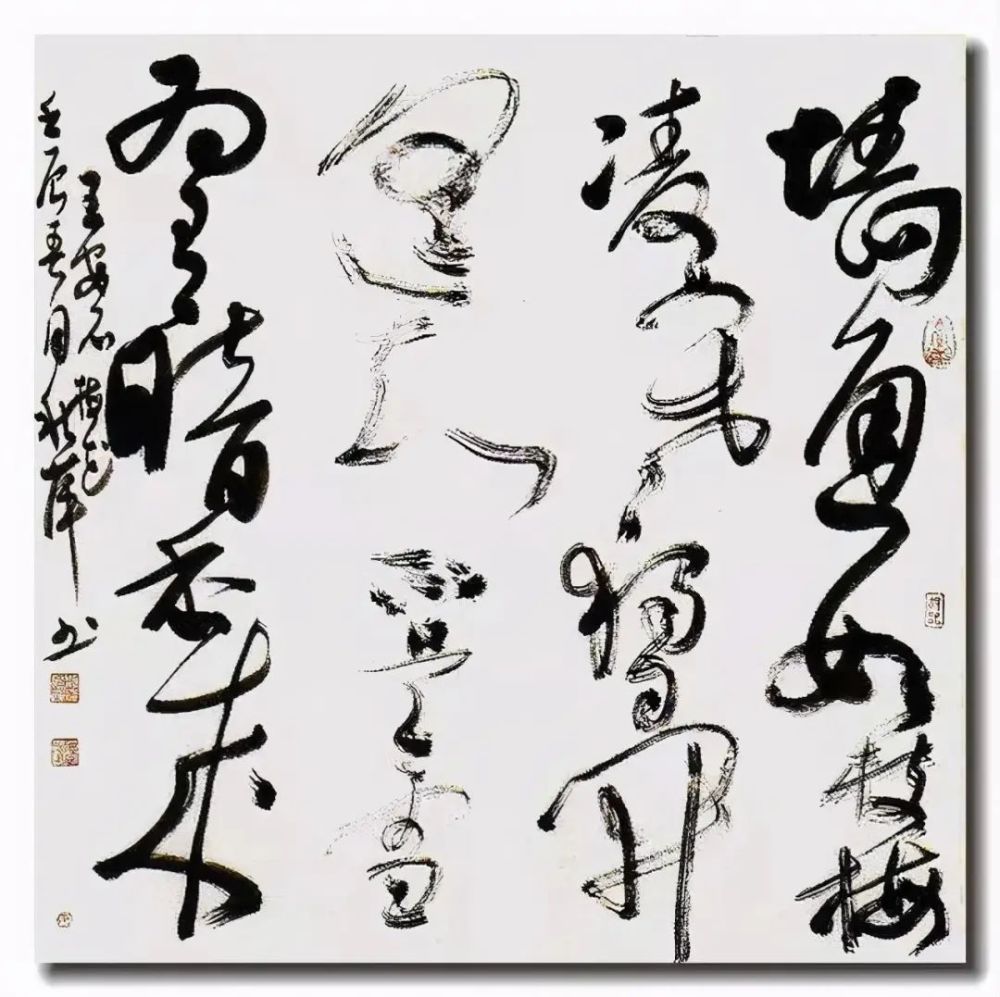 墙角数枝梅
凌寒独自开
遥知不是雪
为有暗香来
王安石梅花
壬辰春月
书